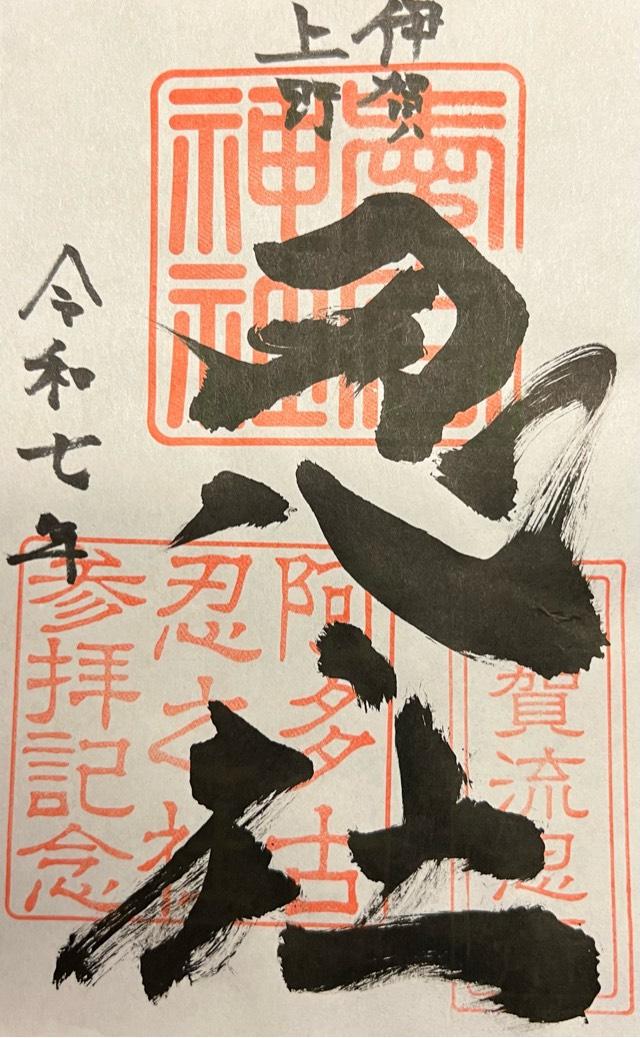 伊賀
上野
神社
忍社
令和七年
賀流忍
阿多古
忍之社
参拝記念